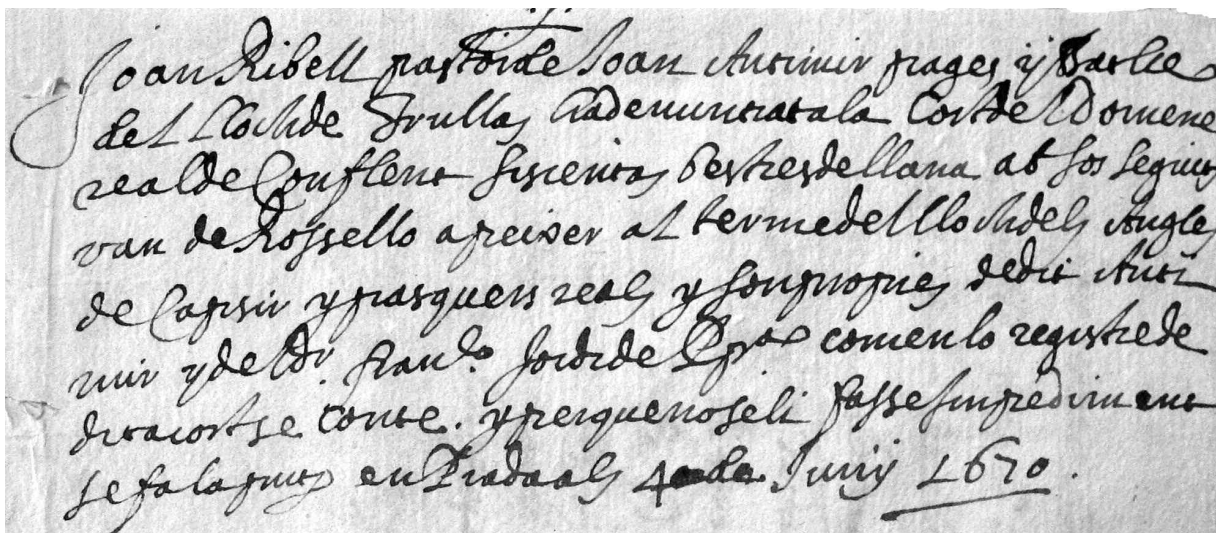 Joan Ribell pastor de Joan Antimir pages y Batlle
del Lloch de Trullas ha denunciat a la Cort del Domene
real de Conflent siscientas besties de llana ab sos seguits
van de Rossello a peixer al terme del lloch dels Angles
de Capsir y pasquers reals y son propries de dit Anti
mir y del Dr. Fran.co Jordi de Perp.a comen lo registre de
dita cort se conte. y perque no seli fasse impediment
se fa la pnt en Prada als 4 de Juny 1670.